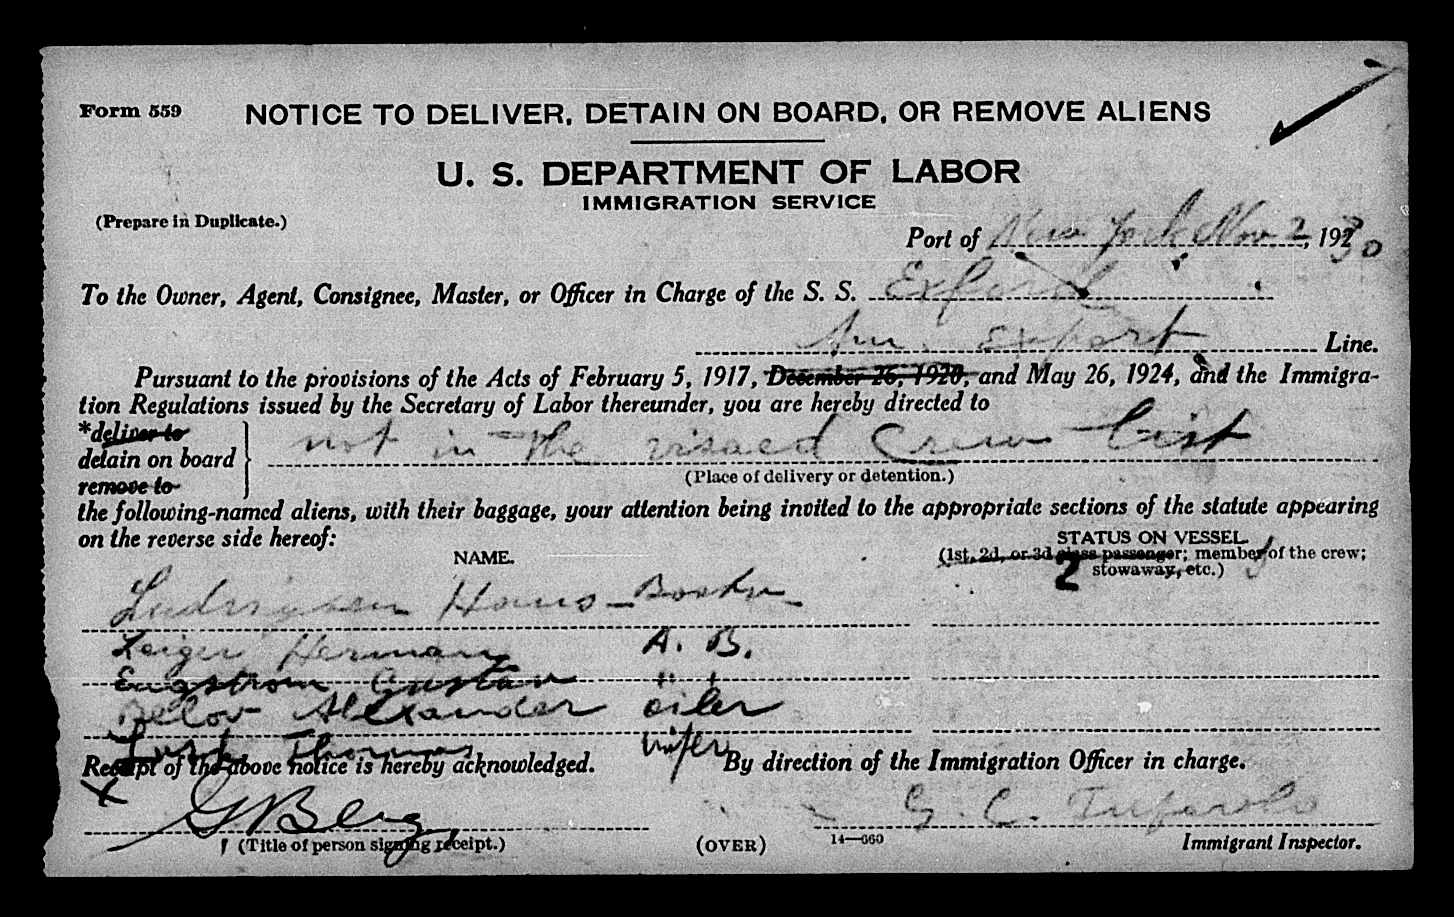 Form 559 NOTICE TO DELIVER, DETAIN ON BOARD, OR REMOVE ALIENS
U. S. DEPARTMENT OF LABOR
IMMIGRATION SERVICE
(Prepare in Duplicate.)
Port of New York Nov 2, 1930
To the Owner, Agent, Consignee, Master, or Officer in Charge of the S. S. Exford
Am. Export Line.
Pursuant to the provisions of the Acts of February 5, 1917, December 26, 1920, and May 26, 1924, and the Immigra-
tion Regulations issued by the Secretary of Labor thereunder, you are hereby directed to
*deliver to
detain on board not in the visaed Crew List
remove to
(Place of delivery or detention.)
the following-named aliens, with their baggage, your attention being invited to the appropriate sections of the statute appearing
on the reverse side hereof:
NAME.
STATUS ON VESSEL
(1st, 2d, or 3d class passenger; member of the crew;
stowaway, etc.)
2
Hans
Herman A. B.
Engstrom Gustav " "
Belov Alexander oiler
Thomas wiper
Receipt of the above notice is hereby acknowledged. By direction of the Immigration Officer in charge.
X G Berg G. C.
(Title of person signing receipt.) (OVER) 14—660 Immigrant Inspector.